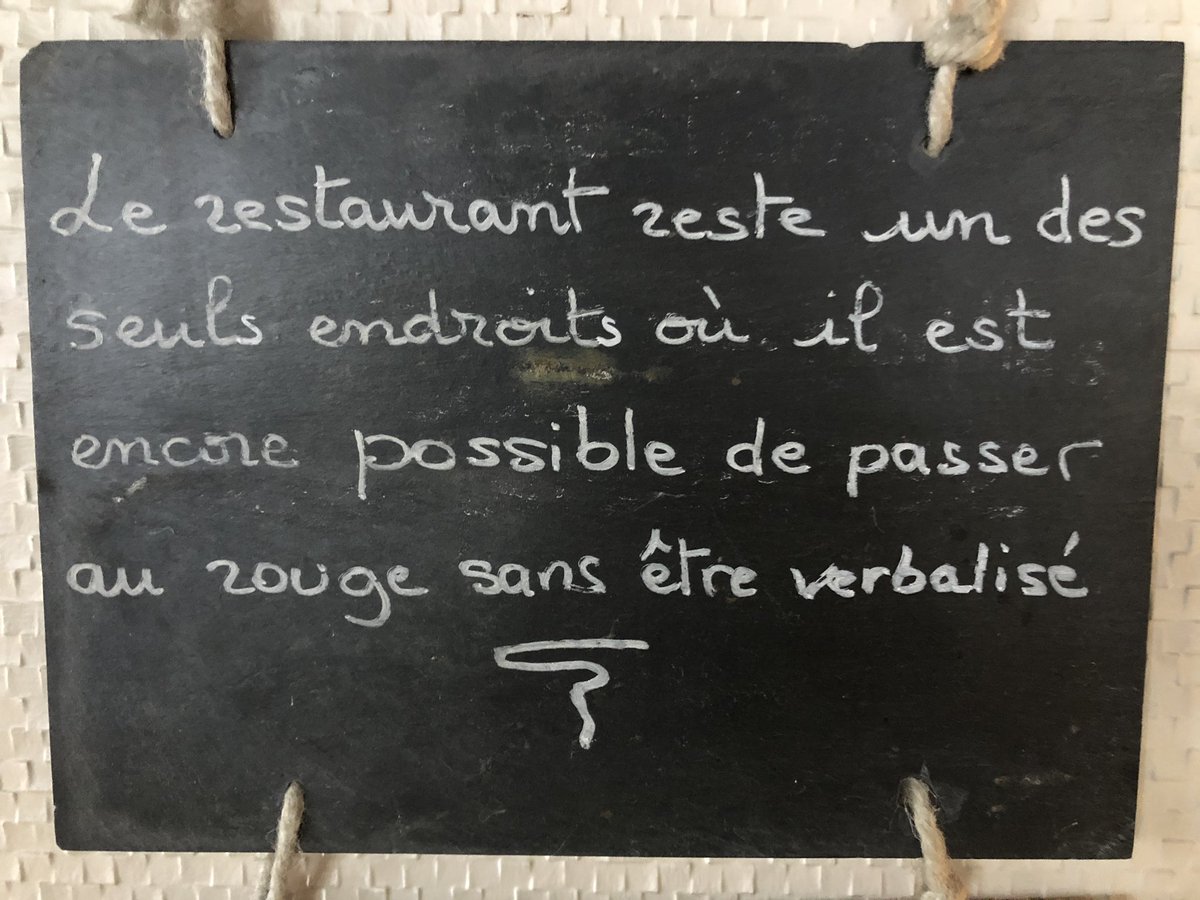 Le restaurant reste un des
seuls endroits où il est
encore possible de passer
au rouge sans être verbalisé